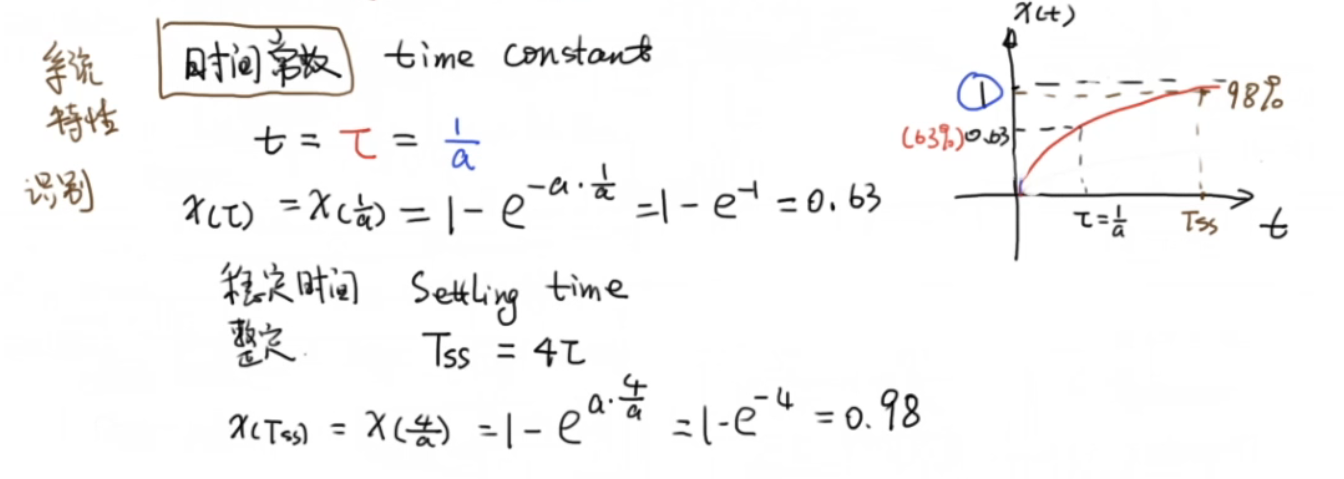 系统
特性
识别
时间常数 time constant
t = τ = 1/a
x(τ) = x(1/a) = 1 - e^{-a·1/a} = 1 - e^{-1} = 0.63
稳定时间 Settling time
整定 Tss = 4τ
x(Tss) = x(4/a) = 1 - e^{a·4/a} = 1 - e^{-4} = 0.98
x(t)
1
98%
(63%) 0.63
τ = 1/a
Tss
t